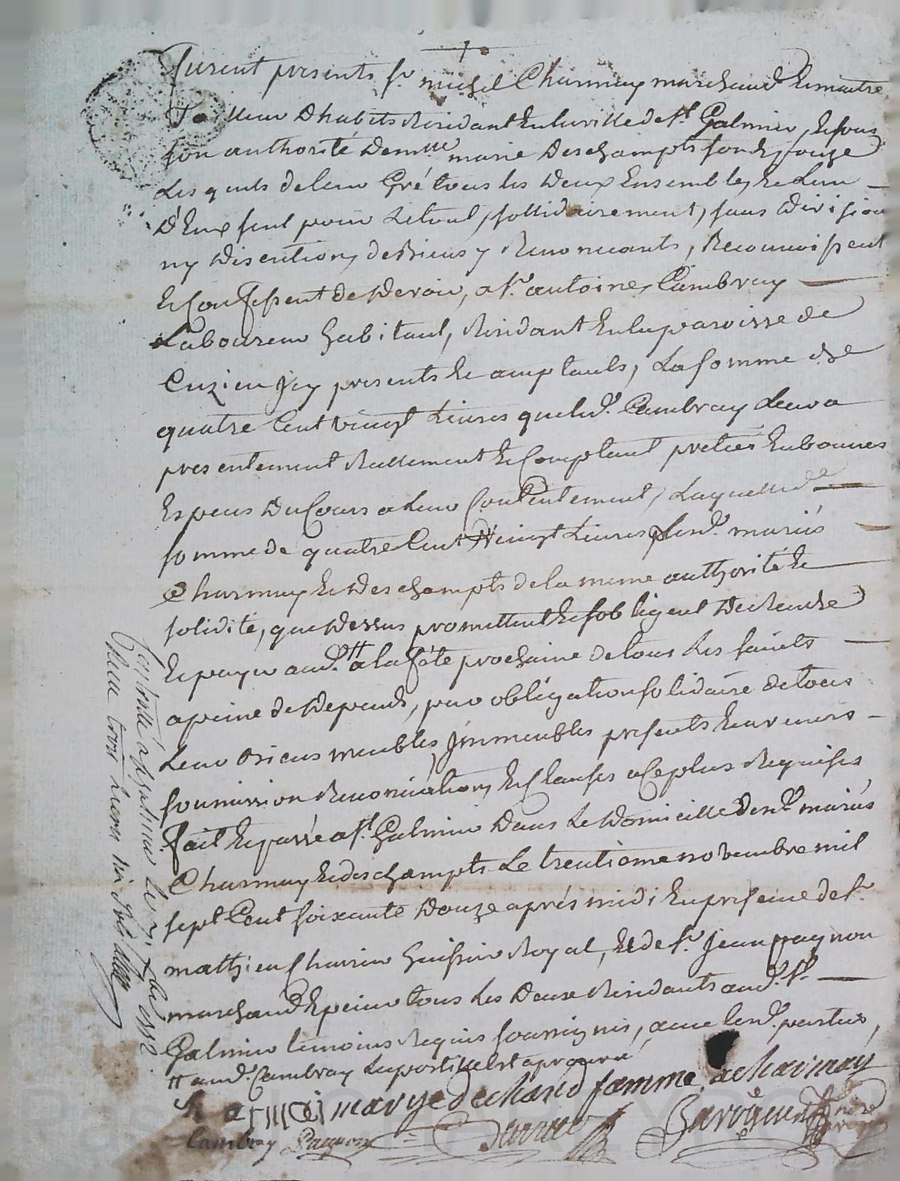 furent presents sr. michel Charmay marchand & maitre
Tailleur D'habits Residant En la ville de st. Galmier, & sous
son authorité Demlle marie Deschampts son Epouze
Lesquels de leur Gré tous les Deux Ensemble, & L'un
D'Eux seul pour Le tout, sollidairement, sans Division
ny Discution, de Biens y Renoncants, Reconnoissent
& Confessent de Devoir, a sr. antoine Cambray
Laboureur habitant, Residant En la paroisse de
Cuzieu Jcy present & acceptant, La somme de
quatre Cent vingt Livres que led. Cambray Leur a
presentement Reellement & Comptant pretée En bonnes
Especes Du Cours a Leur Contentement, Laquelle de
somme de quatre Cent vingt Livres lesd. mariés
Charmay & Deschampts de la meme authorité &
solidité, que Dessus promettent & s'obligent De Rendre
& payer aud. tt a la fête prochaine de tous Les saints
a peine de Depends, par obligation solidaire de tous
Leur Biens meubles, Jmmeubles presents & avenirs
soumission Renonciations & Clauses a Ce plus Requises
fait & passé a st. Galmier Dans Le Domicille Desd. mariés
Charmay & deschampts Le trentieme novembre mil
sept Cent soixante Douze aprés midi En presence de sr.
mathieu Huissier Royal, & de sr. Jean pagnon
marchand Epicier tous Les Deux Residants aud. st.
Galmier temoins Requis soussignés, avec lesd. parties,
tt aud. Cambray Lapostille Est aprouvé
marye dechand famme a charmay
Cambray Pagnon
Controllé a st. Galmier Le
Reçu trois livres